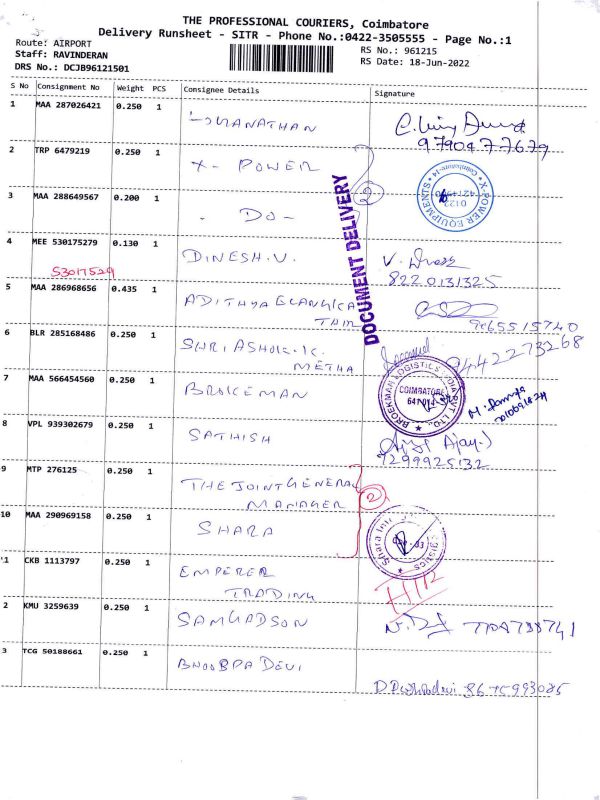 THE PROFESSIONAL COURIERS, Coimbatore
Delivery Runsheet - SITR - Phone No.:0422-3505555 - Page No.:1
Route: AIRPORT
Staff: RAVINDERAN
DRS No.: DCJB96121501
RS No.: 961215
RS Date: 18-Jun-2022
S No Consignment No Weight PCS Consignee Details Signature
1 MAA 287026421 0.250 1
9790477679
2 TRP 6479219 0.250 1 X- POWER
2
X-POWER EQUIPMENTS
Coimbatore-14
0422
3 MAA 288649567 0.200 1 - DO -
DOCUMENT DELIVERY
4 MEE 530175279 0.130 1 DINESH.V.
8220131325
53017529
5 MAA 286968656 0.435 1 ADITHYA
9865515740
6 BLR 285168486 0.250 1 SHRI ASHOK.K.
METHA
9442273268
7 MAA 566454560 0.250 1 BROKEMAN
BROEKMAN LOGISTICS INDIA PVT LTD.,
COIMBATORE
8 VPL 939302679 0.250 1 SATHISH
Ajay.)
7299925132
9 MTP 276125 0.250 1 THE JOINT GENERAL
MANAGER
2
10 MAA 290969158 0.250 1 SHARA
Shara
1 CKB 1113797 0.250 1 EMPERER
TRADING
2 KMU 3259639 0.250 1 SAMGADSON
3 TCG 50188661 0.250 1 BHOOBPA DEVI